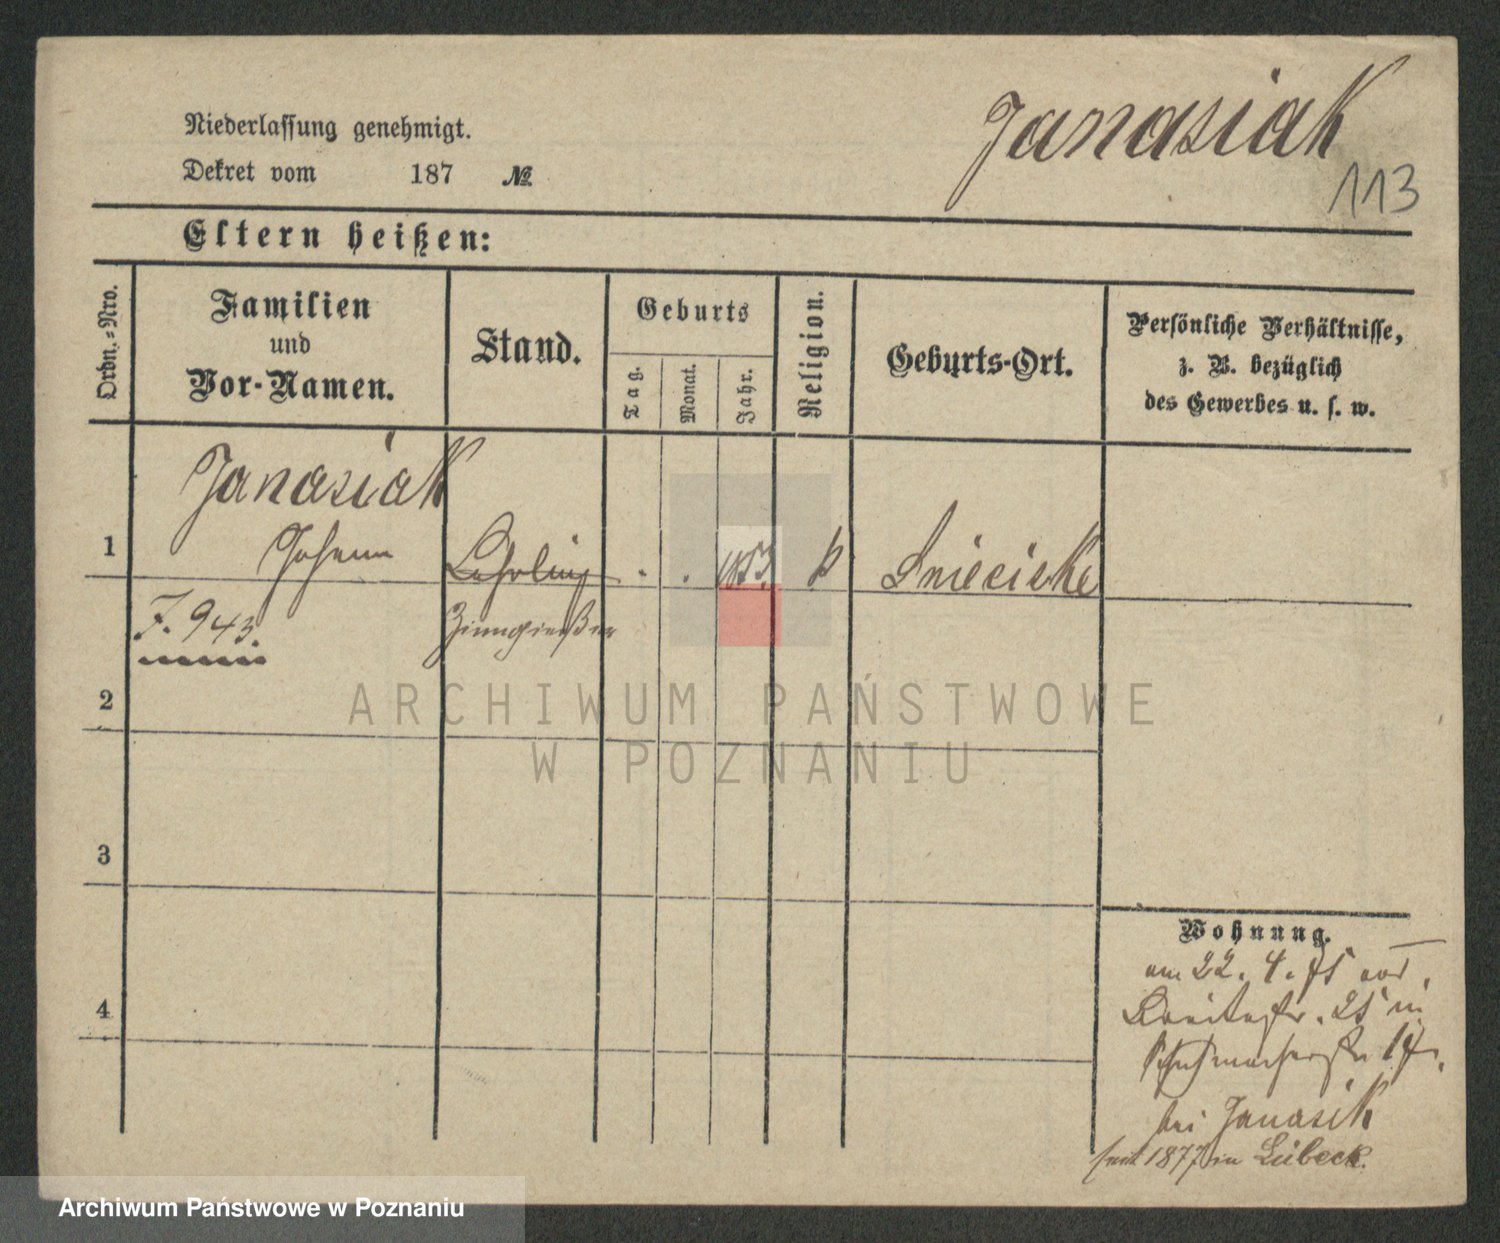 Janasiak
113
Niederlassung genehmigt.
Dekret vom 187 №
Eltern heißen:
Ordn.-Nro.
Familien und Vor-Namen.
Stand.
Geburts
Tag.
Monat.
Jahr.
Religion.
Geburts-Ort.
Persönliche Verhältnisse,
z. B. bezüglich
des Gewerbes u. s. w.
Janasiak
1 Johann Lehrling . . 1853 k Snieciske
F. 943. Zinngießer
2
3
4
Wohnung.
am 22. 4. 75 von
Breitestr. 25 in
Schuhmacherstr 17.
bei Janasik
seit 1877 in Lübeck.
ARCHIWUM PAŃSTWOWE
W POZNANIU
Archiwum Państwowe w Poznaniu